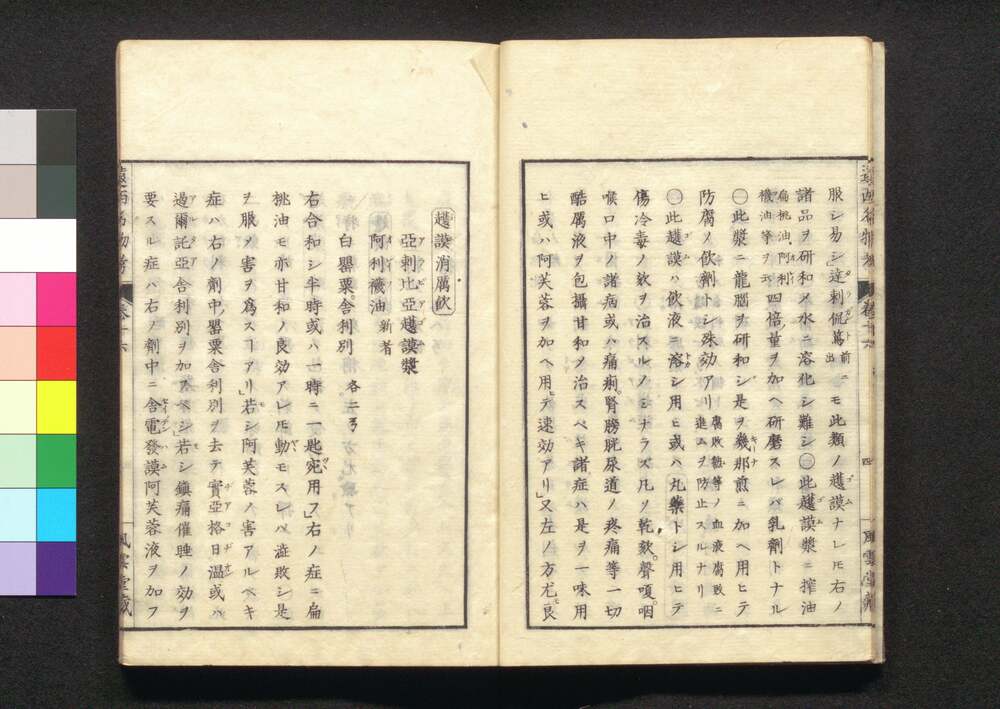 服シ易シ達剌侃篤前ニ出モ此類ノ越謨ナレモ右ノ
諸品ヲ研和〆水ニ溶化シ難シ〇此越謨漿ニ搾油
扁桃油阿利襪油等ヲ云四倍量ヲ加ヘ研磨スレバ乳劑トナル
〇此漿ニ龍腦ヲ研和シ是ヲ幾那煎ニ加ヘ用ヒテ
防腐ノ飮劑トシ殊効アリ腐敗熱等ノ血液腐敗ニ進ムヲ防止スルナリ
〇此越謨ハ飮液ニ溶シ用ヒ或ハ丸藥トシ用ヒテ
傷冷毒ノ欬ヲ治スルノミナラズ凡ソ乾欬聲嗄咽
喉口中ノ諸病或ハ痛痢腎膀胱尿道ノ疼痛等一切
酷厲液ヲ包攝甘和〆治スベキ諸症ハ是ヲ一味用
ヒ或ハ阿芙蓉ヲ加ヘ用ヒテ速効アリ又左ノ方尤良
四
越謨消厲飮
亞剌比亞越謨漿
阿利襪油 新者
白罌粟舍利別 各二弓
右合和シ半時或ハ一時ニ一匙宛用フ右ノ症ニ扁
桃油モ亦甘和ノ良効アレモ動モスレバ澁敗シ是
ヲ服ノ害ヲ爲スアリ若シ阿芙蓉ノ害アルベキ
症ハ右ノ劑中罌粟舍利別ヲ去テ實亞格日温或ハ
過爾託亞舍利別ヲ加スベシ若シ鎭痛催睡ノ効ヲ
要スル症ハ右ノ劑中ニ舍電發謨阿芙蓉液ヲ加フ
遠西名物考 卷十六
風雲堂藏